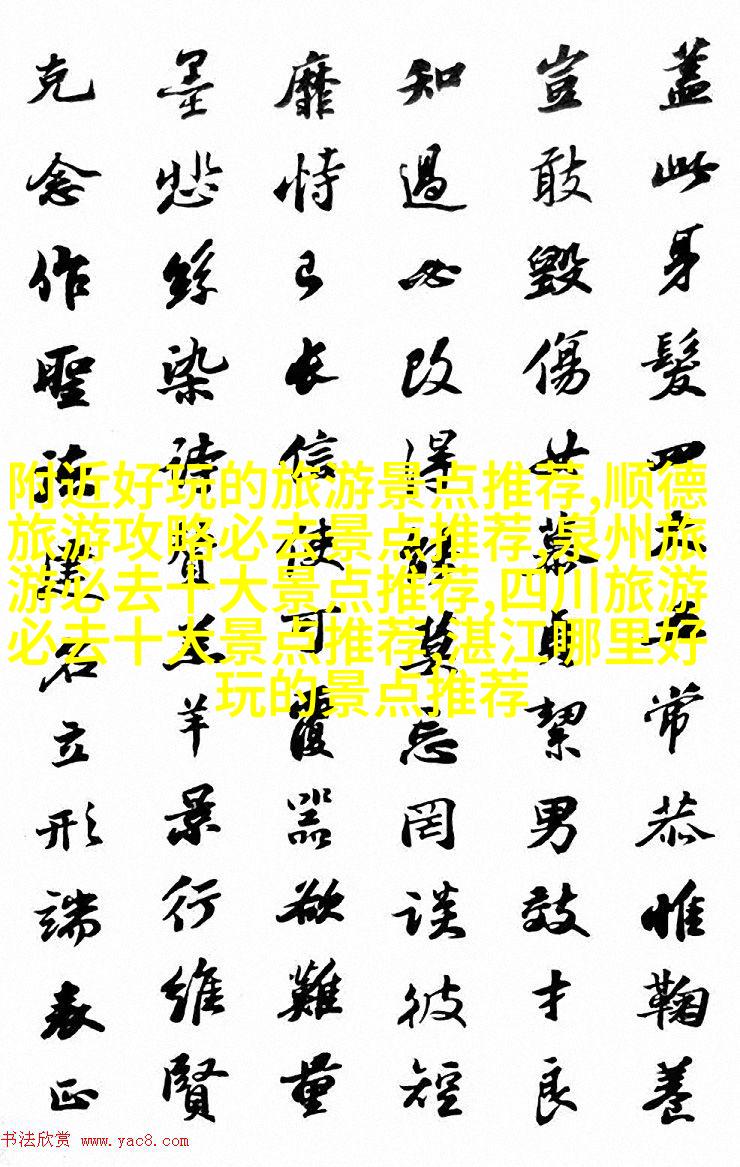 蓋此身髮四大五常恭惟鞠養
豈敢毀傷女慕貞絜男效才良
知過必改得能莫忘罔談彼短
靡恃己長信使可覆器欲難量
墨悲絲染詩賛羔羊景行維賢
克念作聖名立形端表正
附近好玩的旅游景点推荐,顺德
旅游攻略必去景点推荐,泉州旅
游必去十大景点推荐,四川旅游
必去十大景点推荐,湛江哪里好
玩的景点推荐
书法欣赏 www.yac8.com